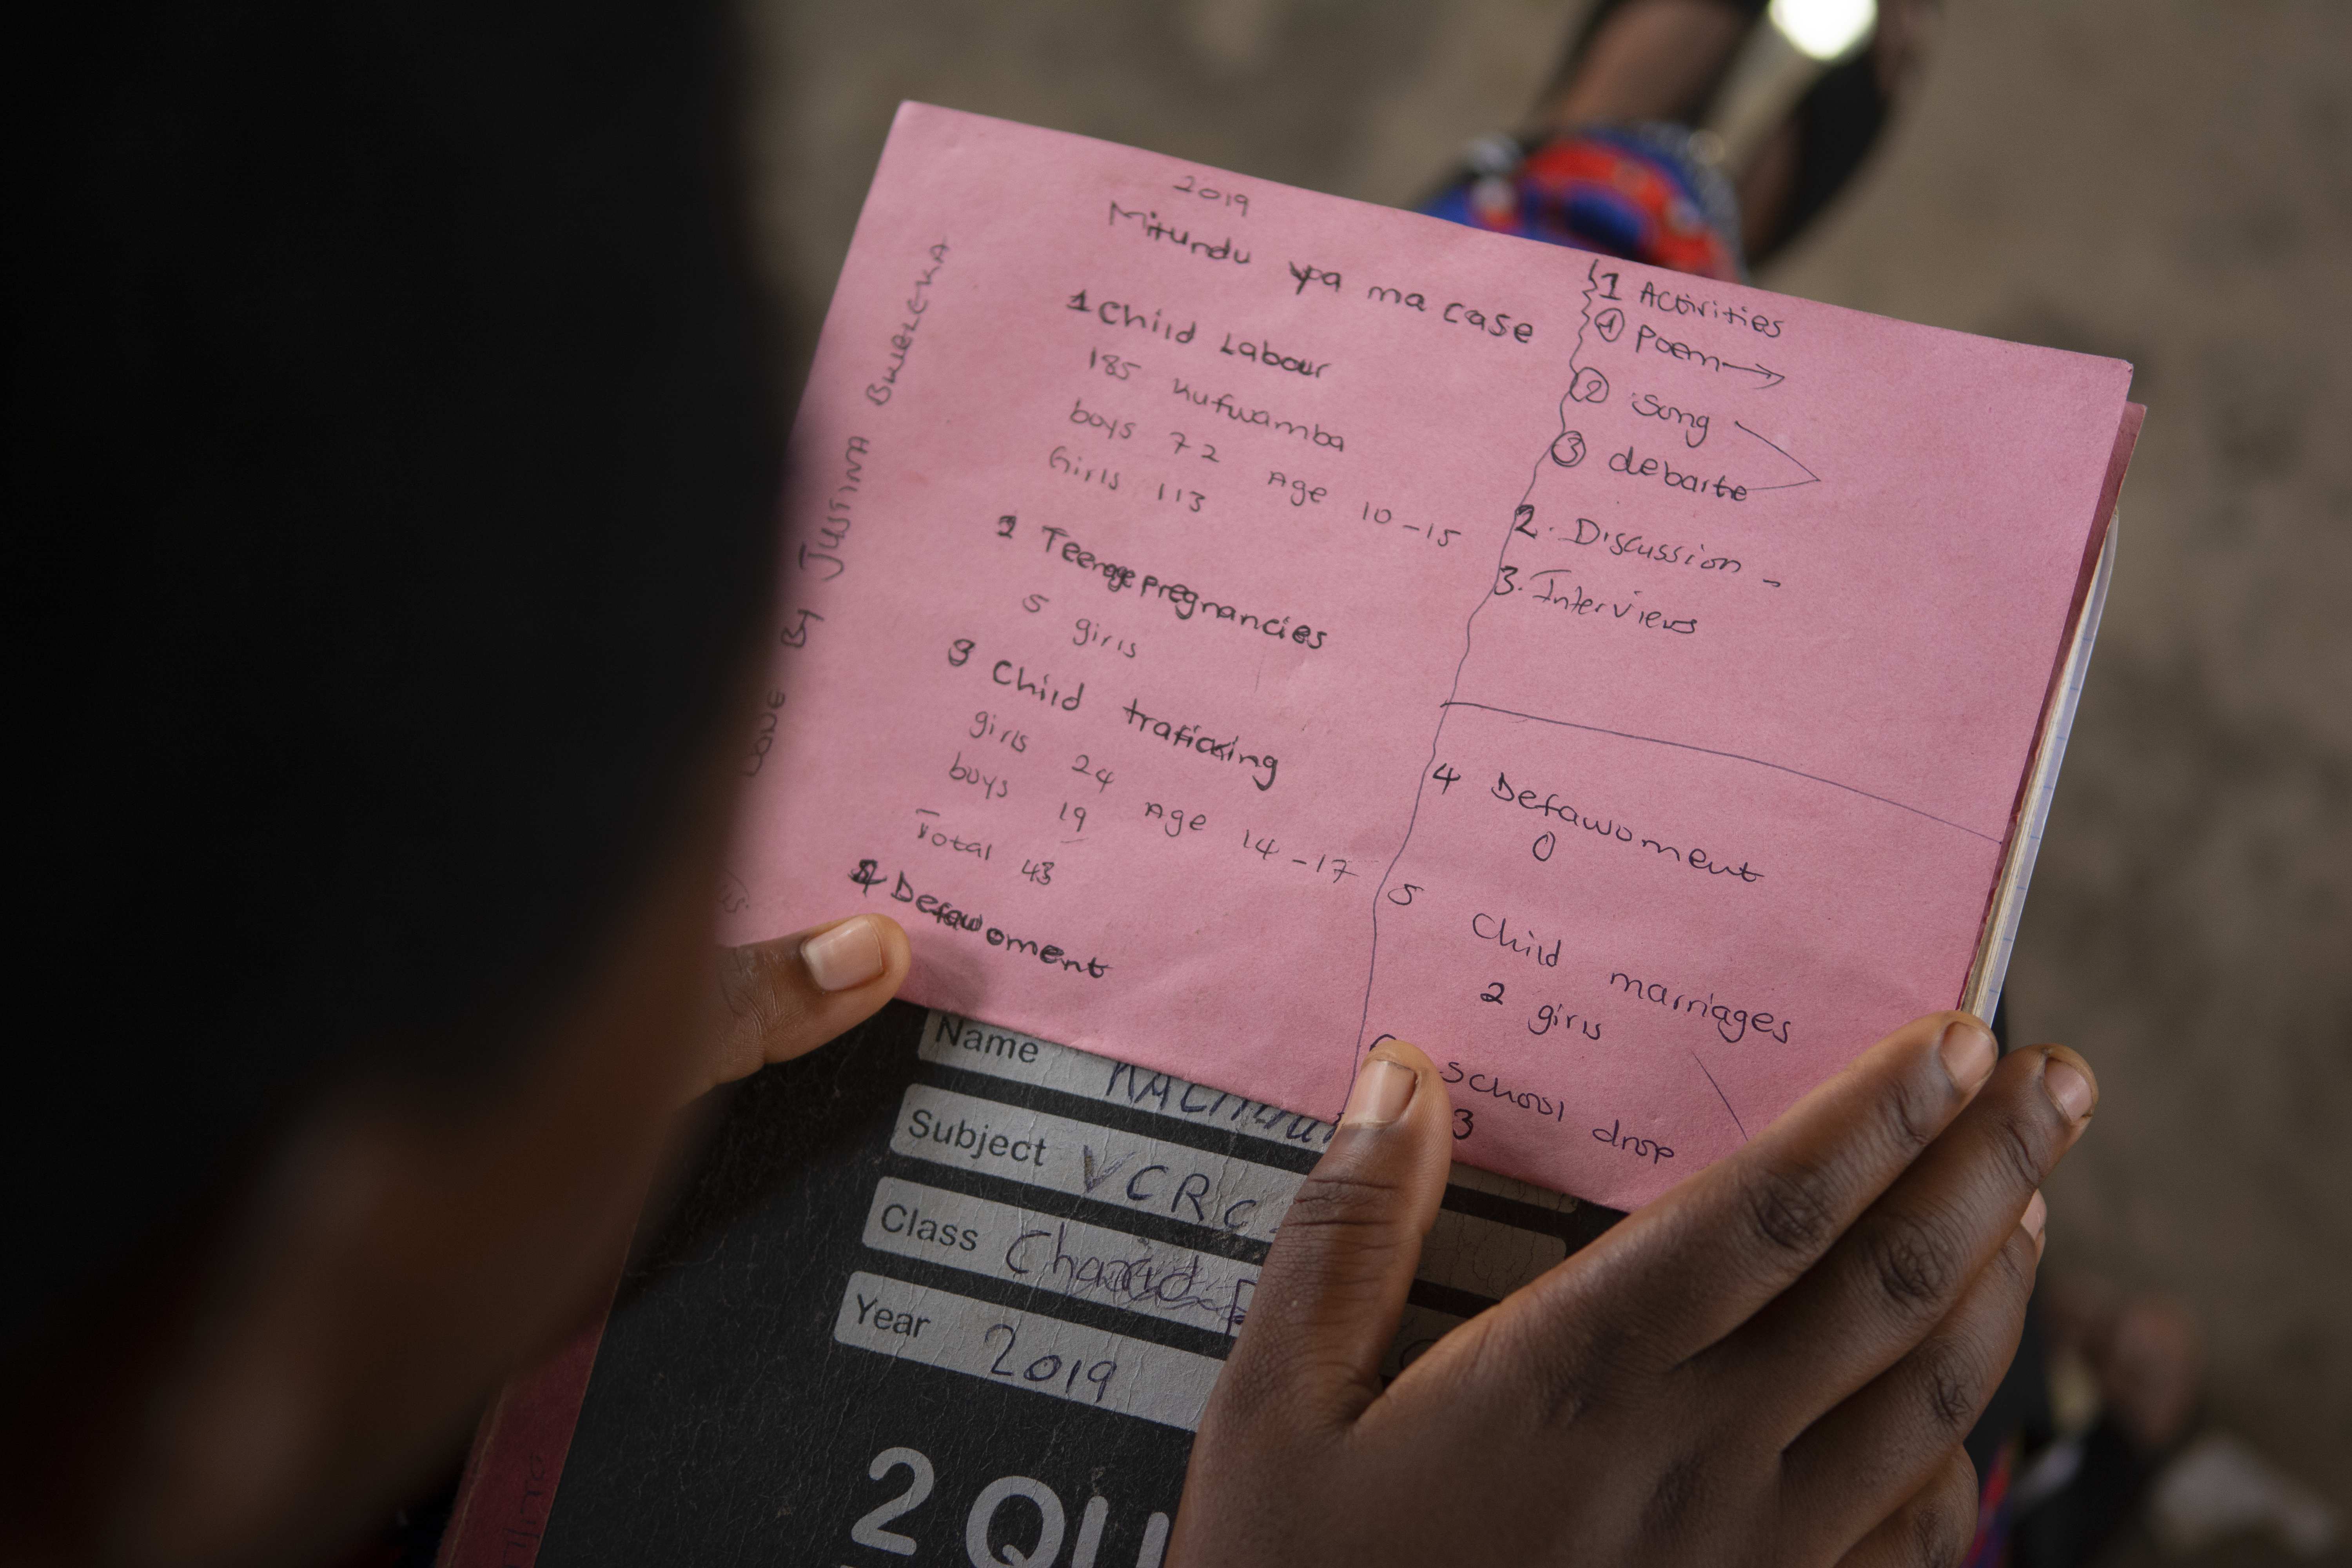 2019
Mitundu ya ma case
1 Child Labour
185 kufwamba
boys 72 Age 10-15
Girls 113
2 Teenage pregnancies
5 girls
3 Child traficking
girls 24
boys 19 Age 14-17
Total 43
4 Defawoment
1 Activities
① Poem →
② Song
③ debarte
2. Discussion -
3. Interviews
4 Defawoment
0
5 Child marriages
2 girls
school drop
3
Done By JUSTINA BWELEKA
Name
Subject VCRC
Class
Year 2019
2 QU